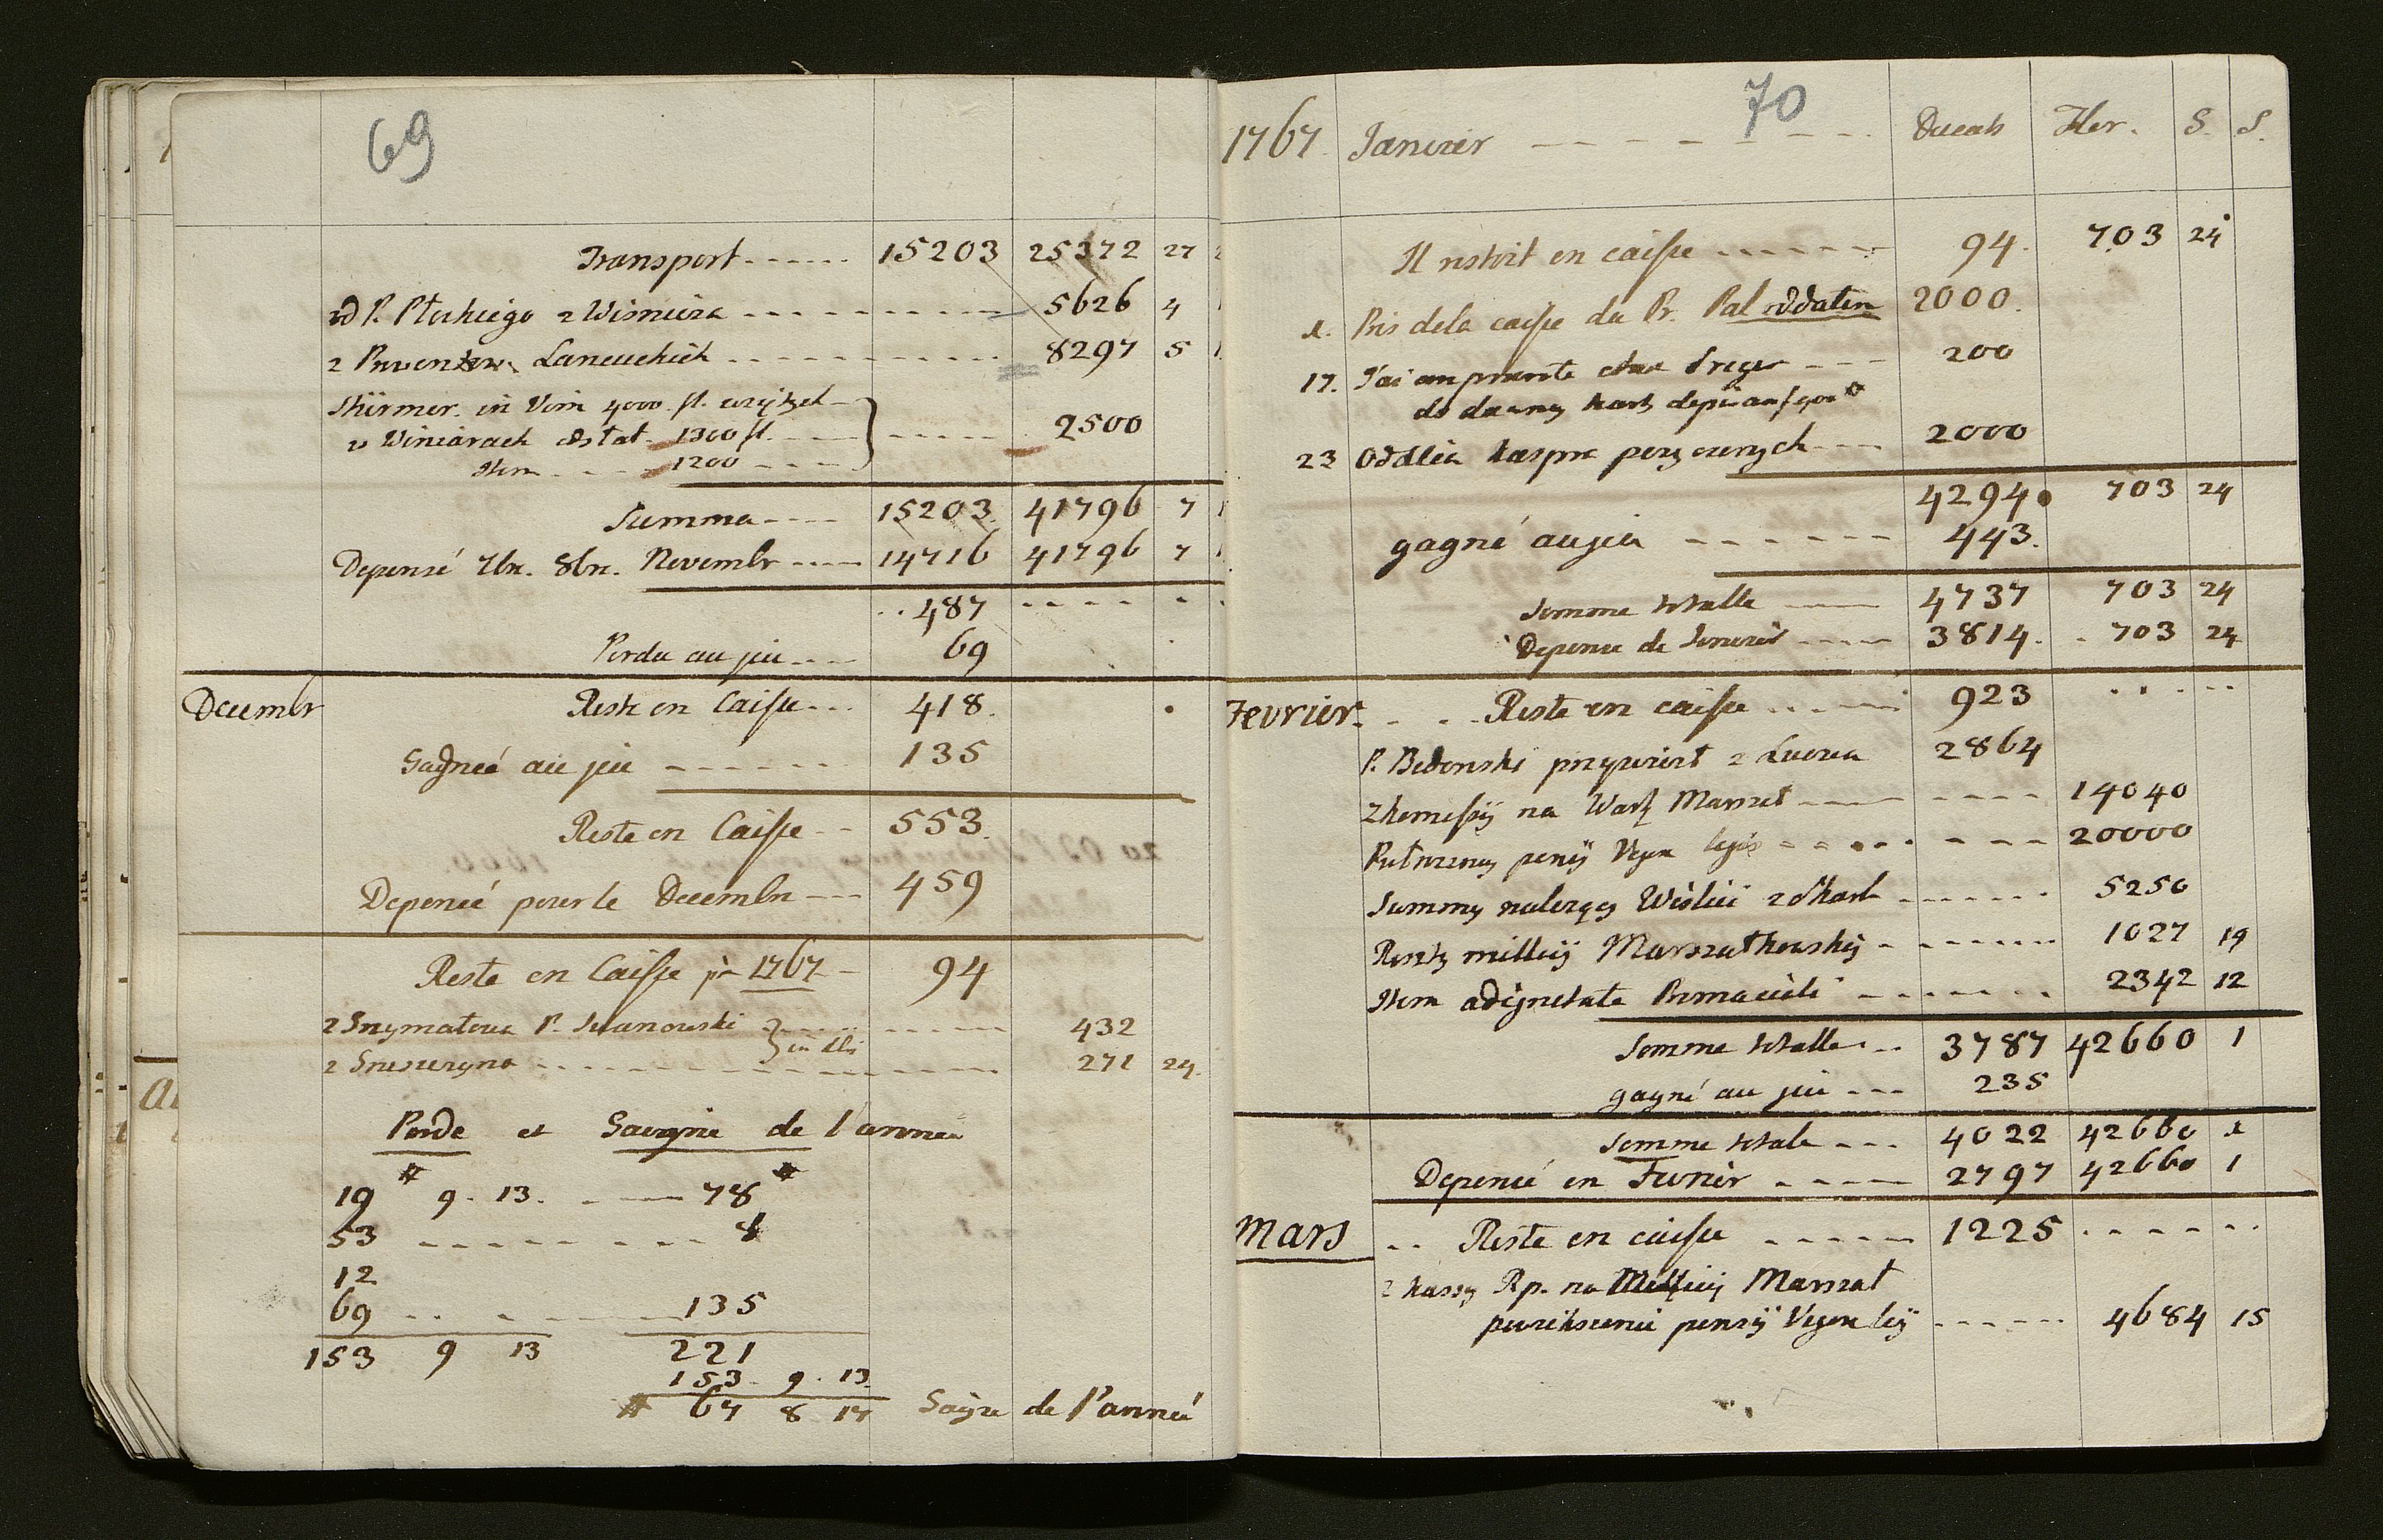 69
Transport ------ 15203 25372 27
od P. Płuskiego z Wisnicza ---------- 5626 4
z Prowentow Lancuckich ---------- 8297 5
Stürmer. in Vim 4000. fl.
w Winiarach dostał 1300 fl. ------ 2500
Item ---- 1200 ----
Summa ---- 15203 41796 7
Depensé 7br. 8br. Novembr ---- 14716 41796 7
.. 487 ----
Perdu au jeu ---- 69
Decembr Reste en Caisse --- 418.
Gagneé au jeu ------ 135
Reste en Caisse -- 553.
Depensé pour le Decembre --- 459
Reste en Caisse pr 1767 - 94
P. Iwanowski ------ 432
------ 271 24.
Perde et Gagnie de l'année
19 # 9. 13. ---- 78 #
53 -------- 8
12
69 .. ---- 135
153 9 13 221
153. 9. 13.
# 67 8 17 Gagne de l'anneé
1767. Janvier ----- 70 Ducats Fler. S. S.
Il restoit en caisse ------ 94. 703 24
1. Pris dela caisse du Pr. Pal oddałem 2000.
17. J'ai emprunté chez Dreger --- 200
23 Oddał Kaspra pozyczonych --- 2000
4294 703 24
gagné au jeu ------ 443.
Somme totalle ---- 4737 703 24
Depense de Janvier ---- 3814. 703 24
Fevrier. - . - Reste en caisse ------ 923
P. Bedonski przywiozł z Lwowa 2864
z komessyi na Warsz Marszał ---- 14040
---- 20000
Summy nalezący Wislici z Skarb ------ 5250
Reszty millicyi Marszałkowskiy ------ 1027 19
Item ------ 2342 12
Somme totalle --- 3787 42660 1
gagné au jeu --- 235
Somme totale --- 4022 42660 1
Depensé en Fevrier ---- 2797 42660 1
Mars .. Reste en caisse ----- 1225 ------
z kassy Rp. na Millicij Marszał
pensyi ------ 4684 15